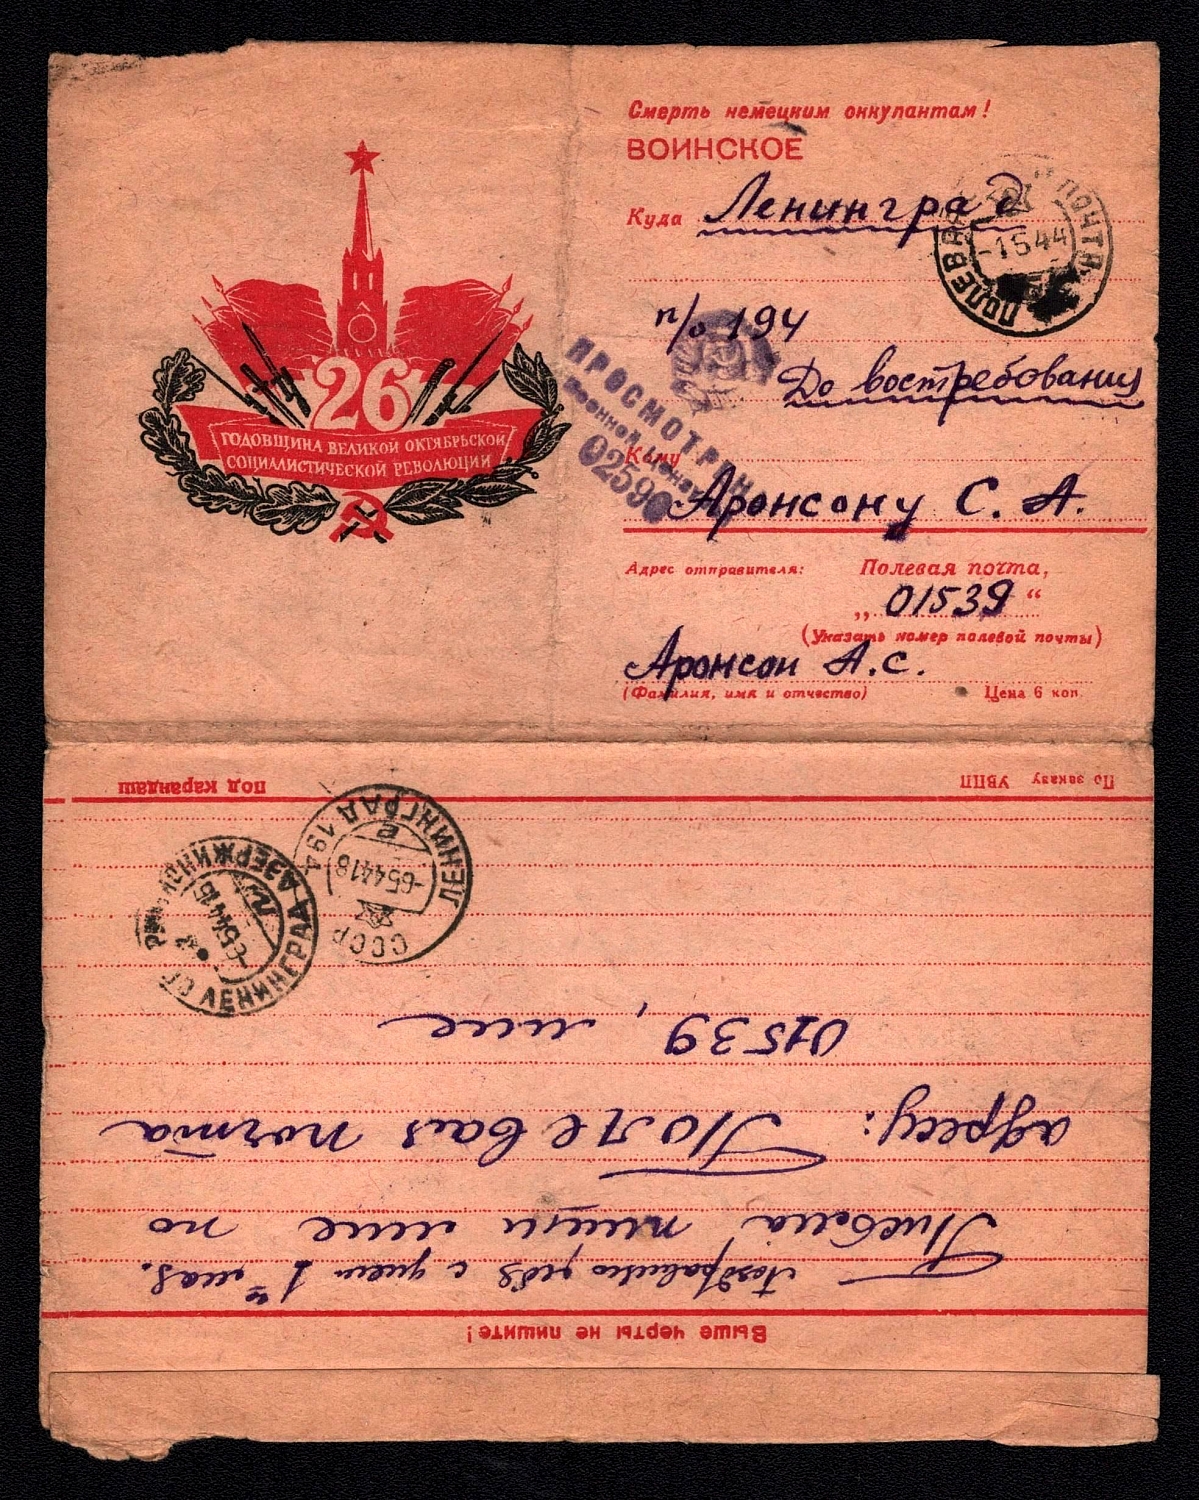 Смерть немецким оккупантам!
ВОИНСКОЕ
Куда Ленинград
п/о 194
До востребования
Кому
Аронсону С. А.
Адрес отправителя: Полевая почта,
„01539“
(Указать номер полевой почты)
Аронсон А.С.
(Фамилия, имя и отчество) Цена 6 коп.
26
ГОДОВЩИНА ВЕЛИКОЙ ОКТЯБРЬСКОЙ
СОЦИАЛИСТИЧЕСКОЙ РЕВОЛЮЦИИ
ПОЛЕВАЯ ПОЧТА
-1 5 44
ПРОСМОТРЕНО
Военной Цензурой
02590
Выше черты не пишите!
Поздравляю тебя с днем 1ое мая.
Письма пиши мне по
адресу: Полевая почта
01539, мне
СССР ЛЕНИНГРАД 194
-6 5 44 18
е
ЛЕНИНГРАД ДЗЕРЖИНСК
-6 5 44 15
По заказу УВПП
Под карандаш